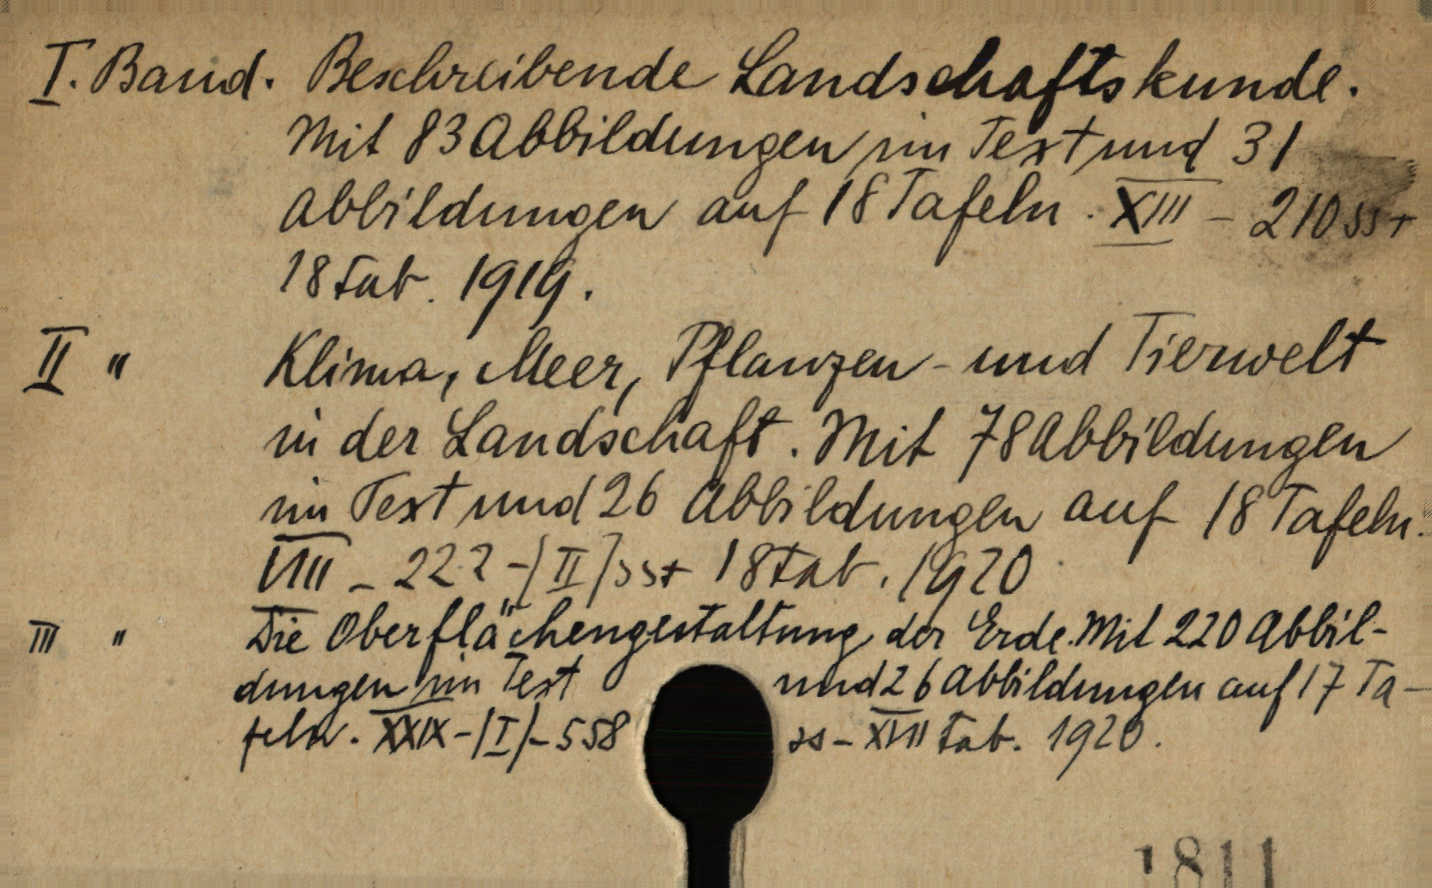 I. Band. Beschreibende Landschaftskunde.
Mit 83 Abbildungen im Text und 31
Abbildungen auf 18 Tafeln. XIII - 210 ss +
18 tab. 1919.
II " Klima, Meer, Pflanzen- und Tierwelt
in der Landschaft. Mit 78 Abbildungen
im Text und 26 Abbildungen auf 18 Tafeln.
VIII - 222 - [II] ss + 18 tab. 1920
III " Die Oberflächengestaltung der Erde. Mit 220 Abbil-
dungen im Text und 26 Abbildungen auf 17 Ta-
feln. XXIX - [I] - 558 ss - XVII tab. 1920.
1811